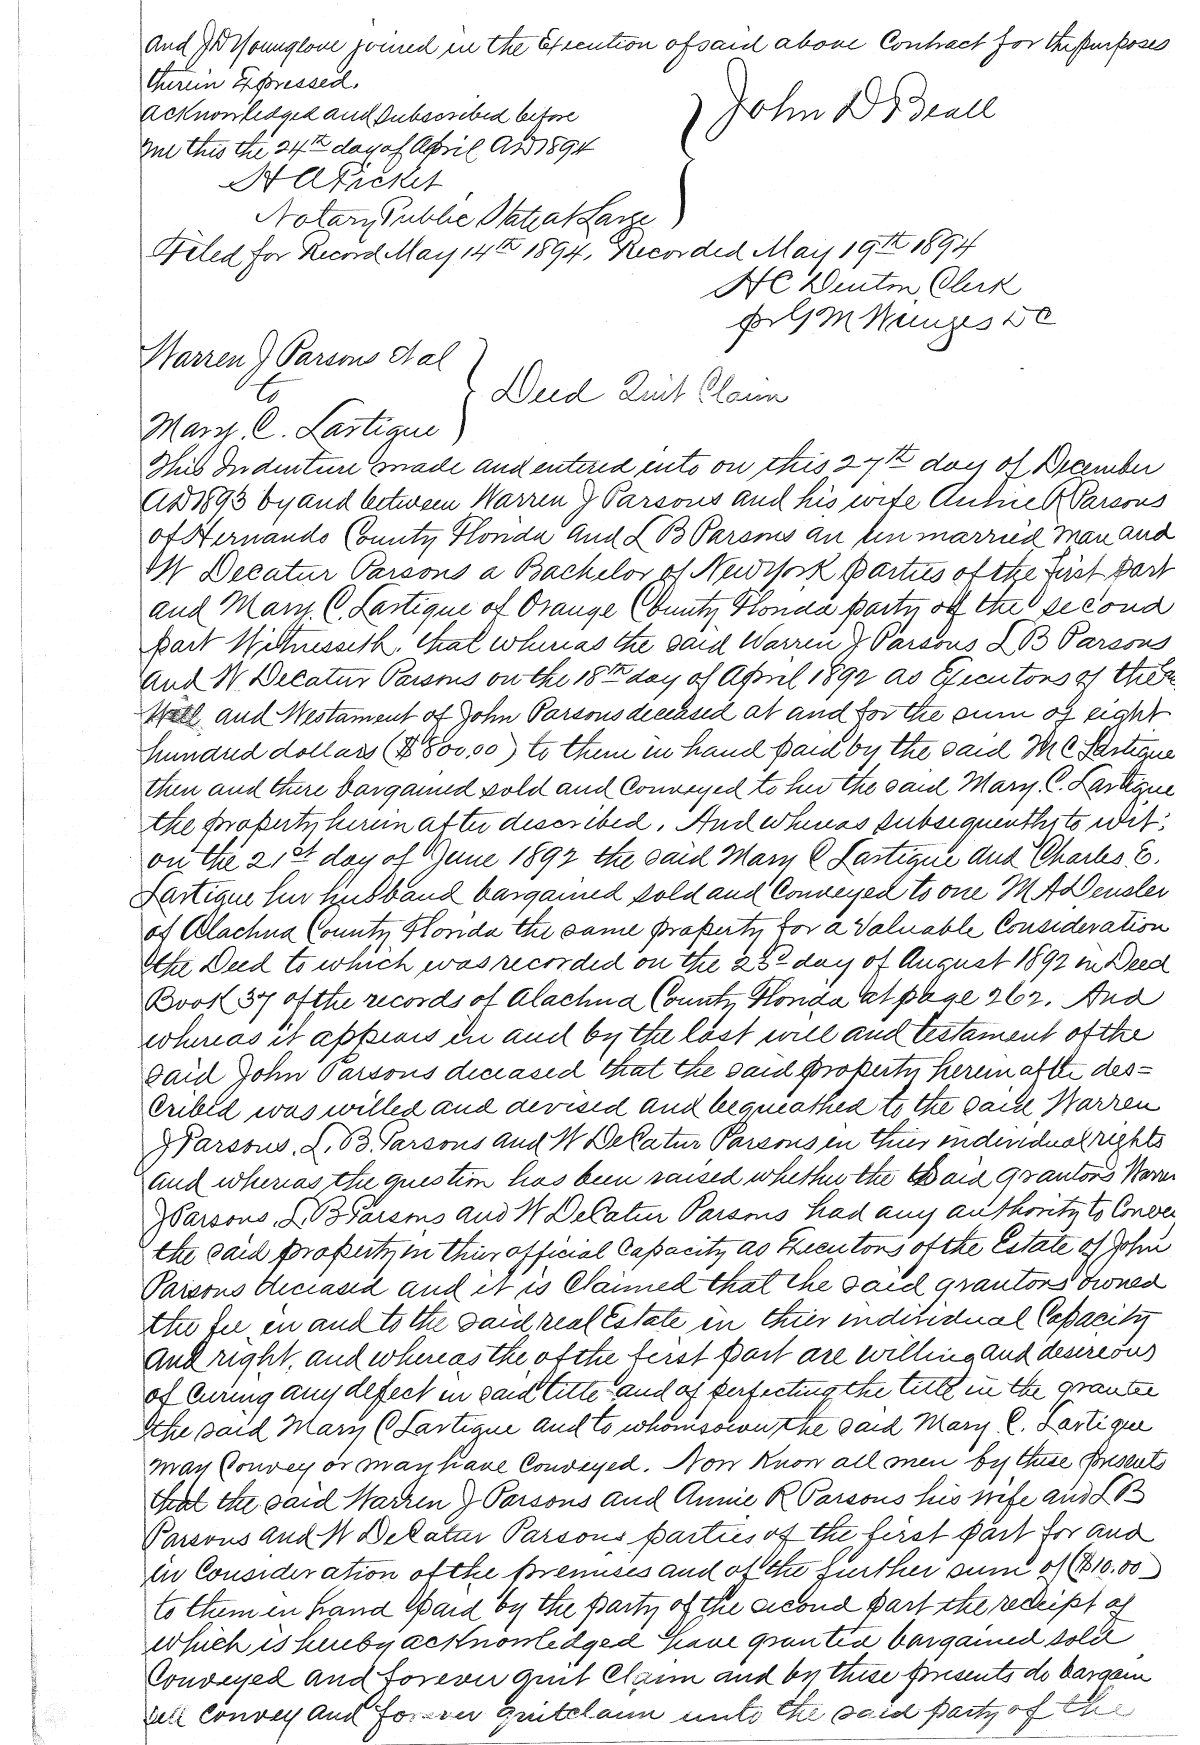 and J D Younglove joined in the Execution of said above Contract for the purposes
therein Expressed.
Acknowledged and subscribed before
me this the 24th day of April AD 1894
John D Beall
H A Picket
Notary Public State at Large
Filed for Record May 14th 1894. Recorded May 19th 1894
H C Denton Clerk
pr G M Wunges D C
Warren J Parsons et al
to
Mary. C. Lartigue
Deed Quit Claim
This Indenture made and entered into on this 27th day of December
AD 1893 by and between Warren J Parsons and his wife Annie R Parsons
of Hernando County Florida and L B Parsons an un married man and
W Decatur Parsons a Bachelor of New York parties of the first part
and Mary. C. Lartigue of Orange County Florida party of the second
part Witnesseth, that whereas the said Warren J Parsons L B Parsons
and W. Decatur Parsons on the 18th day of April 1892 as Executors of the
Will and Westament of John Parsons deceased at and for the sum of eight
hundred dollars ($800.00) to them in hand paid by the said M C Lartigue
then and there bargained sold and Conveyed to her the said Mary. C. Lartigue
the property herein after described. And whereas subsequently to wit:
on the 21st day of June 1892 the said Mary C Lartigue and Charles E.
Lartigue her husband bargained sold and Conveyed to one M A Densler
of Alachua County Florida the same property for a Valuable Consideration
the Deed to which was recorded on the 23d day of August 1892 in Deed
Book 37 of the records of Alachua County Florida at page 262. And
whereas it appears in and by the last will and testament of the
said John Parsons deceased that the said property herein after des=
cribed was willed and devised and bequeathed to the said Warren
J Parsons. L. B. Parsons and W DeCatur Parsons in thier individual rights
and whereas the question has been raised whether the said grantors Warren
J Parsons. L. B Parsons and W DeCatur Parsons had any authority to Convey
the said property in thier official Capacity as Executors of the Estate of John
Parsons deceased and it is Claimed that the said grantors owned
the fee in and to the said real Estate in thier individual Capacity
and right, and whereas the of the first part are willing and desireous
of Curing any defect in said title and of perfecting the title in the grantee
the said Mary C Lartigue and to whomsoever the said Mary C. Lartigue
may Convey or may have Conveyed. Now Know all men by these presents
that the said Warren J Parsons and Annie R Parsons his wife and L B
Parsons and W DeCatur Parsons parties of the first part for and
in Consideration of the premises and of the further sum of ($10.00)
to them in hand paid by the party of the second part the receipt of
which is hereby acknowledged have granted bargained sold
Conveyed and forever quit Claim and by these presents do bargain
sell convey and forever quitclaim unto the said party of the